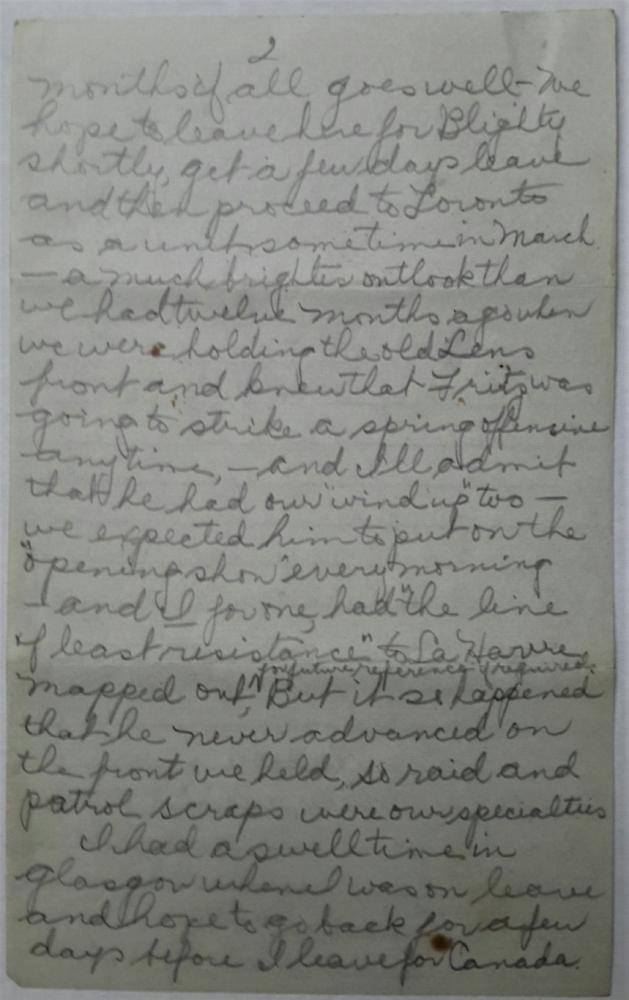 2
months if all goes well - We
hope to leave here for Blighty
shortly, get a few days leave
and then proceed to Toronto
as a unit sometime in March.
- a much brighter outlook than
we had twelve months ago when
we were holding the old Lens
front and knew that Fritz was
going to strike a spring offensive
anytime, - and I'll admit
that he had our "wind up" too -
we expected him to put on the
"opening show" every morning
- and I for one, had "the line
of least resistance" to La Havre
for future reference if required.
mapped out, But it so happened
that he never advanced on
the front we held, so raid and
patrol scraps were our specialties
I had a swell time in
Glasgow when I was on leave
and hope to go back for a few
days before I leave for Canada.